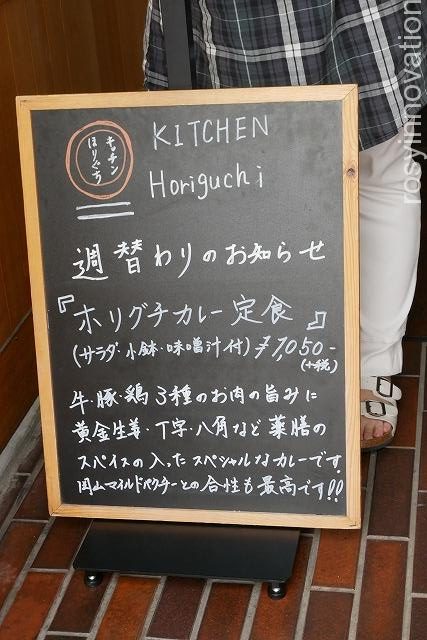 キッチン
ほりぐち
KITCHEN
Horiguchi
週替わりのお知らせ
『ホリグチカレー定食』
(サラダ・小鉢・味噌汁付) ¥1,050-
(+税)
牛・豚・鶏 3種のお肉の旨みに
黄金生姜・丁字・八角など薬膳の
スパイスの入ったスペシャルなカレーです。
岡山マイルドパクチーとの合性も最高です!!
rosyinnovation